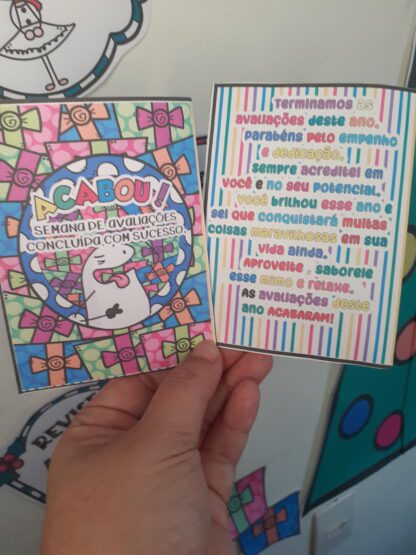 ACABOU!!
SEMANA DE AVALIAÇÕES
CONCLUÍDA COM SUCESSO.
TERMINAMOS AS
AVALIAÇÕES DESTE ANO.
PARABÉNS PELO EMPENHO
E DEDICAÇÃO.
SEMPRE ACREDITEI EM
VOCÊ E NO SEU POTENCIAL.
VOCÊ BRILHOU ESSE ANO E
SEI QUE CONQUISTARÁ MUITAS
COISAS MARAVILHOSAS EM SUA
VIDA AINDA.
APROVEITE , SABOREIE
ESSE MIMO E RELAXE.
AS AVALIAÇÕES DESTE
ANO ACABARAM!